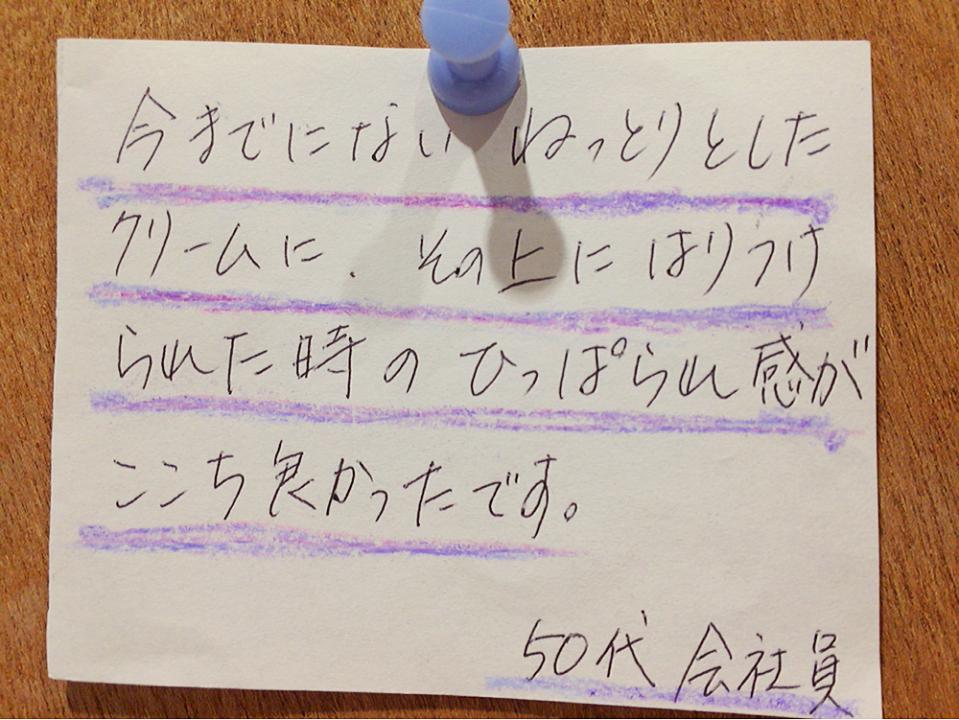 今までにない ねっとりとした
クリームに、その上にはりつけ
られた時の ひっぱられ感が
ここち良かったです。
50代 会社員